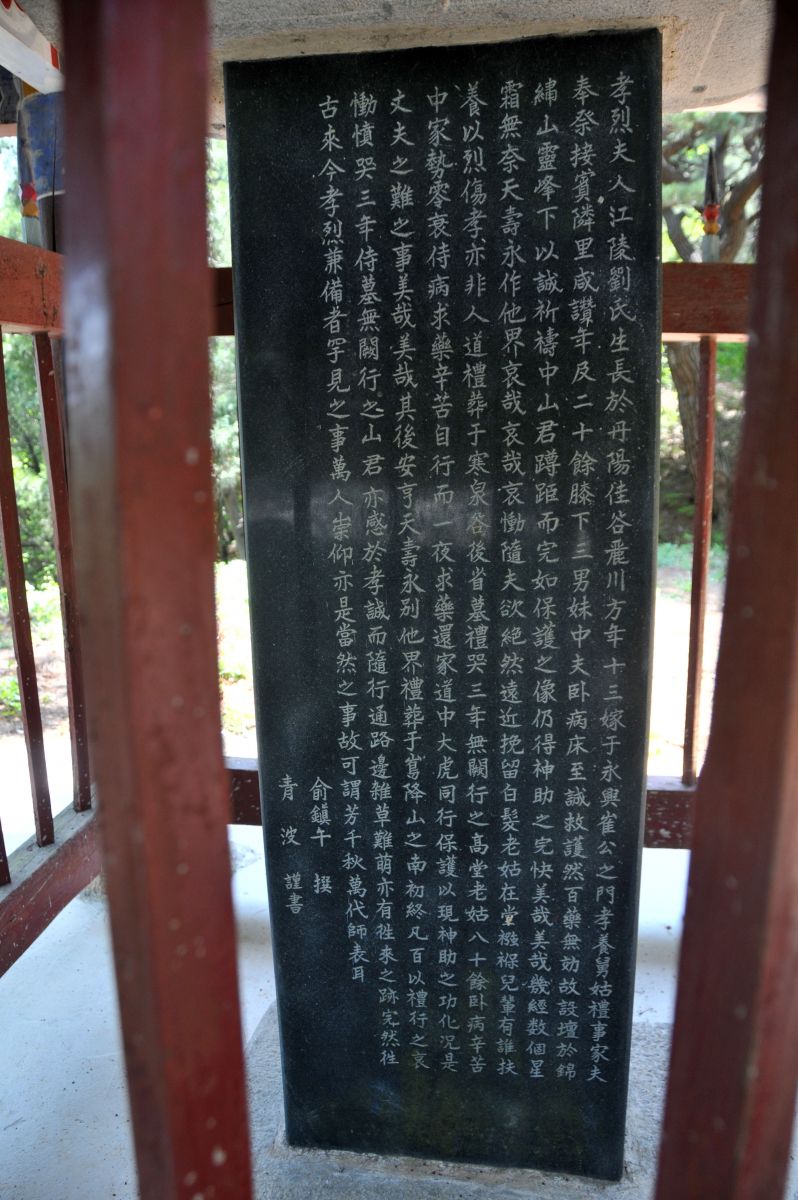 孝烈夫人江陵劉氏生長於丹陽佳谷麗川方年十三嫁于永興崔公之門孝養舅姑禮事家夫
奉祭接賓隣里咸讚年及二十餘膝下三男妹中夫卧病床至誠救護然百藥無効故設壇於錦
繡山靈峰下以誠祈禱中山君蹲距而完如保護之像仍得神助之完快美哉美哉幾經数個星
霜無奈天壽永作他界哀哉哀哉哀慟隨夫欲絶然遠近挽留白髮老姑在堂襁褓兒輩有誰扶
養以烈傷孝亦非人道禮葬于寒泉谷後省墓禮哭三年無闕行之高堂老姑八十餘卧病辛苦
中家勢零衰侍病求藥辛苦自行而一夜求藥還家道中大虎同行保護以現神助之功化况是
丈夫之難之事美哉美哉其後安亨天壽永別他界禮葬于鴌降山之南初終凡百以禮行之哀
慟憤哭三年侍墓無闕行之山君亦感於孝誠而隨行通路邊雑草難萌亦有徃來之跡完然徃
古來今孝烈兼備者罕見之事萬人崇仰亦是當然之事故可謂芳千秋萬代師表耳
俞鎭午 撰
青波 謹書